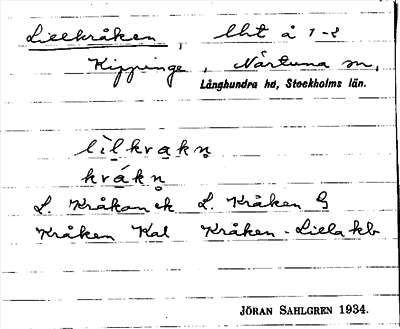 Lillkråken, lht å 1-2
Kippinge, Närtuna sn,
Långhundra hd, Stockholms län.
lìlkrakn̥
krákn̥
L. Kråkan ek L. Kråken G
Kråken Kal Kråken - Lilla kb
JÖRAN SAHLGREN 1934.